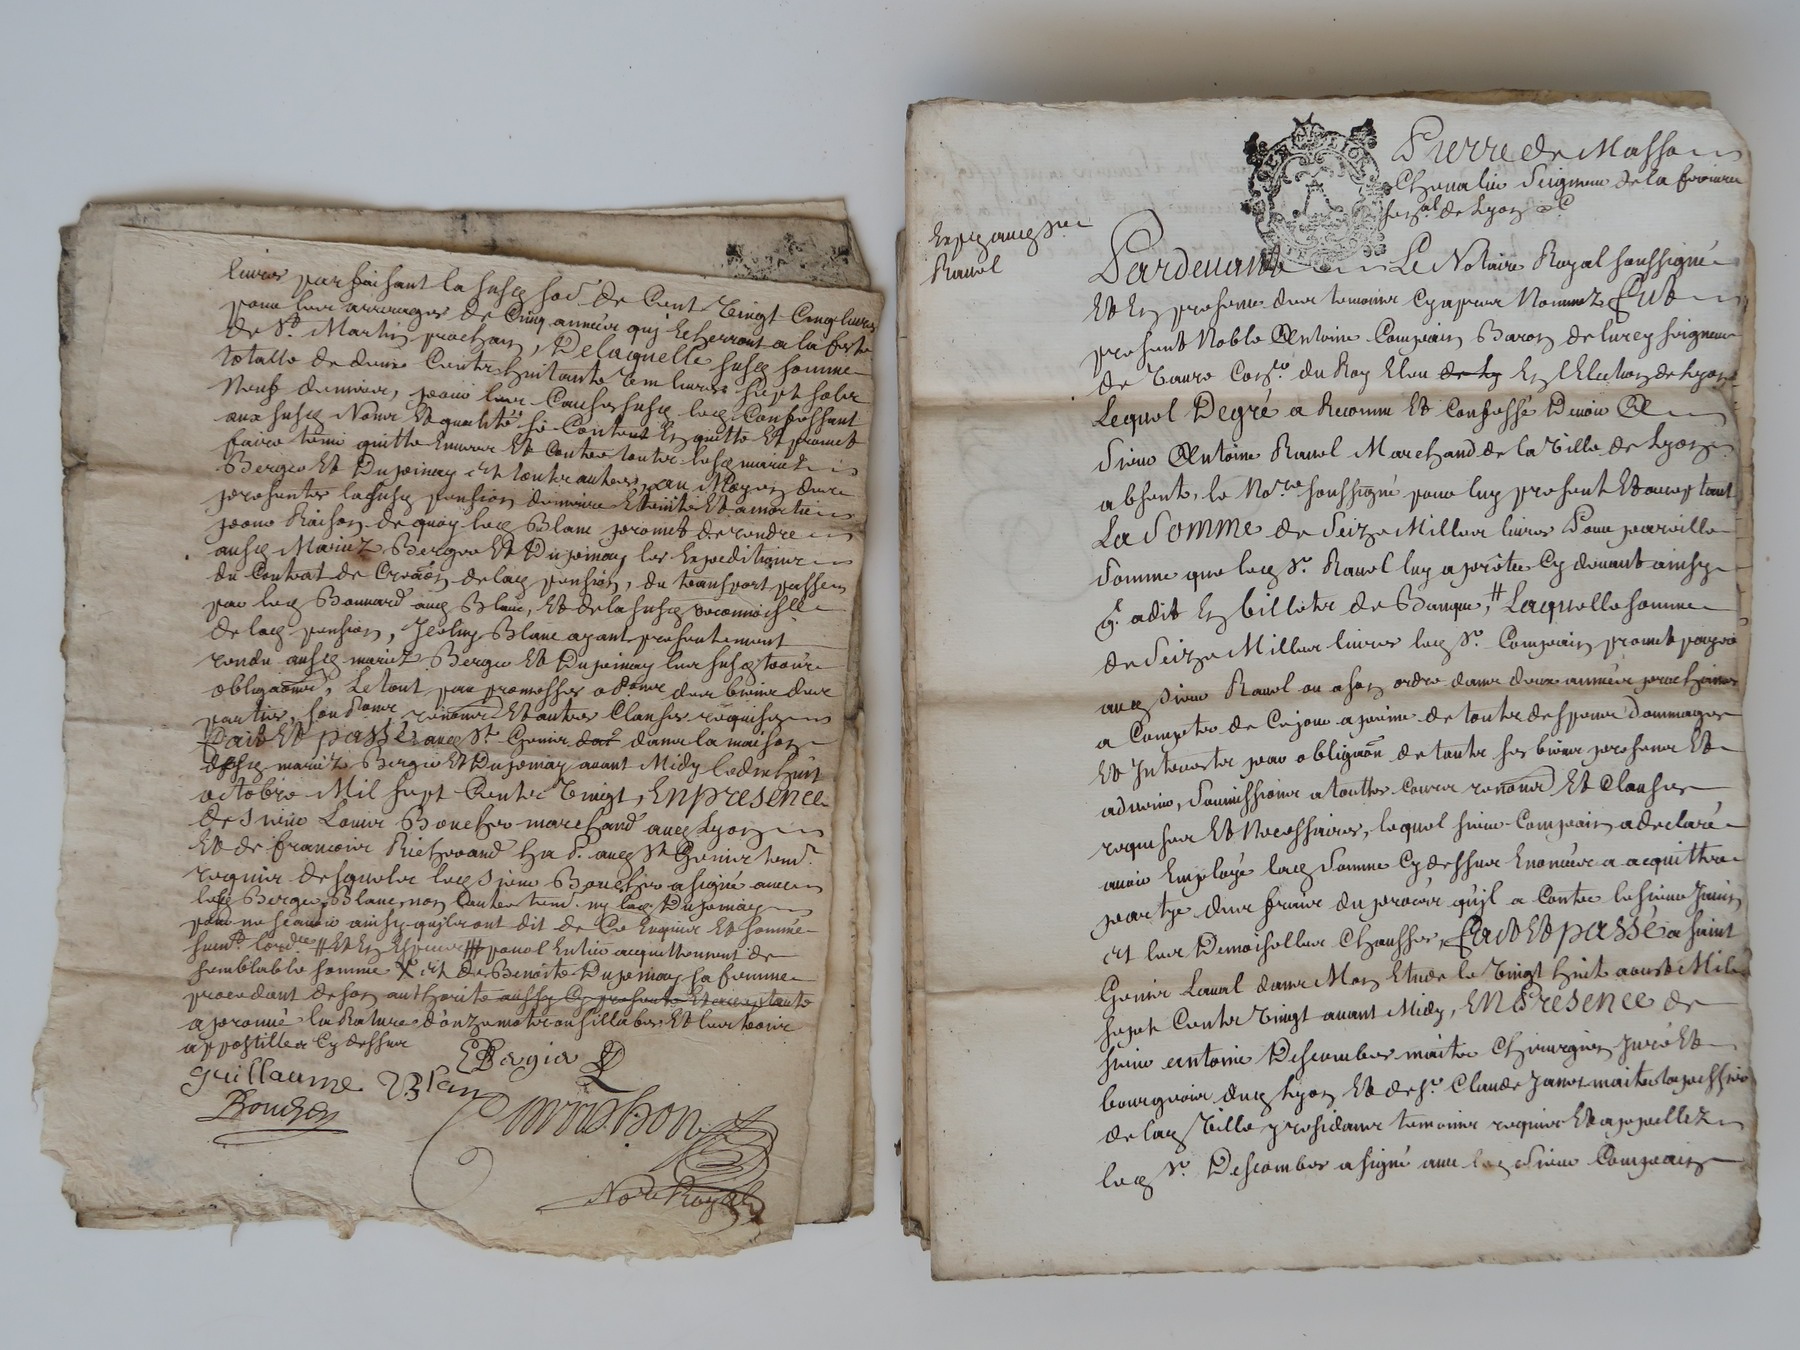 livres parfaisant la susd. so͞e de Cent Vingt Cinq livres
pour les arrerages de Cinq années quj Echerront a la feste
de St. Martin prochain, De laquelle susd. somme
totalle de deux Cents huitante Sem livres sept sols
Neuf deniers, pour les Causes susd. led. Confessant
aux susd. Noms Et qualités se Contente En quitte Et promet
faire tenir quitte Envers Et Contre touts lesd. mariés
Berger Et Dupeinay Et touts autres, au Moyen des
presentes lad. susd. pension demeure Eteinte Et amortie
pour Raison de quoy led. Blanc promet de rendre
ausd. Mariez Berger Et Dupeinay les Expeditions
du Contrat de Creaon de lad. pension, du transport passé
par led. Bonnard aud. Blanc, Et de la susd. reconnoiss.
de lad. pension, Iceluy Blanc ayant presentement
rendu ausd. mariez Berger Et Dupeinay leur susd.
obligaon, Le tout par promesses a peine des biens des
parties, renon͞on Et autres Clauses requises
Fait Et passé aud. St. Genis dans la maison
desd. mariez Berger Et Dupeinay avant Midy le dix huit
octobre Mil sept Cents Vingt, En presence
de Sieur Louis Boucher marchand aud. Lyon
Et de francois Richerand aud. St Genis tem.
requis desquels led. Sieur Boucher a signé avec
lesd. Berger, Blanc, non l'autre tem. ny lad. Dupeinay
pour ne scavoir ainsy qu'ils ont dit de Ce Enquis Et sommé
pour l'Entier acquittement de
semblable somme Et de Benoite Dupeinay sa femme
procedant de son authorité aussy Cy presente Et acceptante
aprouvé la Rature d'onze mots ou sillabes Et les trois
appostilles Cy dessus
guillaume Blan
Boucher
Nore Royal
Pierre de Masso
Chevalier Seigneur de la ferriere
Senal de Lyon &c
Exped. aud. Sr.
Ravel
Pardevant Le Notaire Royal soussigné
Et En presence des temoins Cy apres Nommez Fut
present Noble Antoine Compain Baron de lurcy seigneur
de Vaure Coner. du Roy Eleu de Ly En l'Election de Lyon
Lequel De gré a Reconnu Et Confessé Devoir A
Sieur Antoine Ravel Marchand de la Ville de Lyon
absent, le Nore soussigné pour luy present Et acceptant
La Somme de Seize Milles livres Pour pareille
somme que led. Sr. Ravel luy a prêtée Cy devant ainsy
q. a dit En billets de Banque, Laquelle somme
de Seize Milles livres led. Sr. Compain promet payer
aud. Sieur Ravel ou a son ordre dans deux années prochaines
a Compter de Ce jour a peine de touts despens dommages
Et Interests par obligaon de touts ses biens presens Et
advenir, Soumissions a touttes Cours renon͞on Et Clauses
requises Et Necessaires, lequel sieur Compain a declaré
avoir Employé lad. Somme Cy dessus Enoncée a acquitter
partye des frais du procés qu'il a Contre le sieur Janin
et les Demoiselles Chausse, Fait Et passé a saint
Genis Laval dans Mon Etude le Vingt huit aoust Mil
sept Cents Vingt avant Midy, En Presence de
sieur antoine Descombes maitre Chirurgien Juré Et
bourgeois dud. Lyon Et de sr. Claude Janot maitre tapissier
de lad. Ville y residans temoins requis Et appellez
led. Sr. Descombes a signé avec led. Sieur Compain